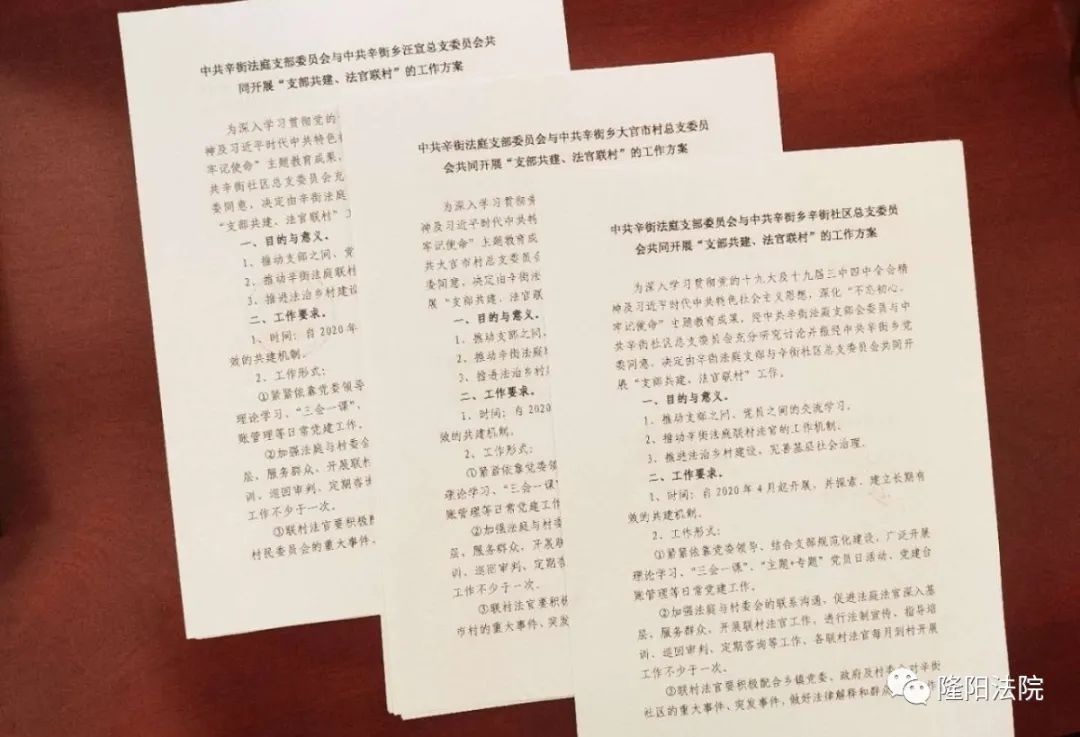 中共辛街法庭支部委员会与中共辛街乡汪官总支委员会共
同开展“支部共建、法官联村”的工作方案
为深入学习贯彻党的
神及习近平时代中共特色
牢记使命”主题教育成果，
共辛街社区总支委员会充
委同意，决定由辛街法庭
“支部共建、法官联村”
一、目的与意义。
1、推动支部之间、党
2、推动辛街法庭联村
3、推进法治乡村建设
二、工作要求。
1、时间：自2020年
效的共建机制。
2、工作形式：
①紧紧依靠党委领导
理论学习、“三会一课”、
账管理等日常党建工作。
②加强法庭与村委会
层、服务群众、开展联村
训、巡回审判、定期咨询
工作不少于一次。
③联村法官要积极配
村民委员会的重大事件、
中共辛街法庭支部委员会与中共辛街乡大官市村总支委员
会共同开展“支部共建、法官联村”的工作方案
为深入学习贯彻党
神及习近平时代中共特
牢记使命”主题教育成
共大官市村总支委员会
委同意，决定由辛街法
展“支部共建、法官联
一、目的与意义。
1、推动支部之间、
2、推动辛街法庭
3、推进法治乡村
二、工作要求。
1、时间：自2020
效的共建机制。
2、工作形式：
①紧紧依靠党委领
理论学习、“三会一课”
账管理等日常党建工作
②加强法庭与村委
层、服务群众、开展联
训、巡回审判、定期咨
工作不少于一次。
③联村法官要积极
市村的重大事件、突发
中共辛街法庭支部委员会与中共辛街乡辛街社区总支委员
会共同开展“支部共建、法官联村”的工作方案
为深入学习贯彻党的十九大及十九届三中四中全会精
神及习近平时代中共特色社会主义思想，深化“不忘初心、
牢记使命”主题教育成果，经中共辛街法庭支部会委员与中
共辛街社区总支委员会充分研究讨论并报经中共辛街乡党
委同意，决定由辛街法庭支部与辛街社区总支委员会共同开
展“支部共建、法官联村”工作。
一、目的与意义。
1、推动支部之间、党员之间的交流学习。
2、推动辛街法庭联村法官的工作机制。
3、推进法治乡村建设，完善基层社会治理。
二、工作要求。
1、时间：自2020年4月起开展，并探索、建立长期有
效的共建机制。
2、工作形式：
①紧紧依靠党委领导、结合支部规范化建设，广泛开展
理论学习、“三会一课”、“主题+专题”党员日活动、党建台
账管理等日常党建工作。
②加强法庭与村委会的联系沟通，促进法庭法官深入基
层、服务群众、开展联村法官工作，进行法制宣传、指导培
训、巡回审判、定期咨询等工作、各联村法官每月到村开展
工作不少于一次。
③联村法官要积极配合乡镇党委、政府及村委会对辛街
社区的重大事件、突发事件，做好法律解释和群众作
隆阳法院